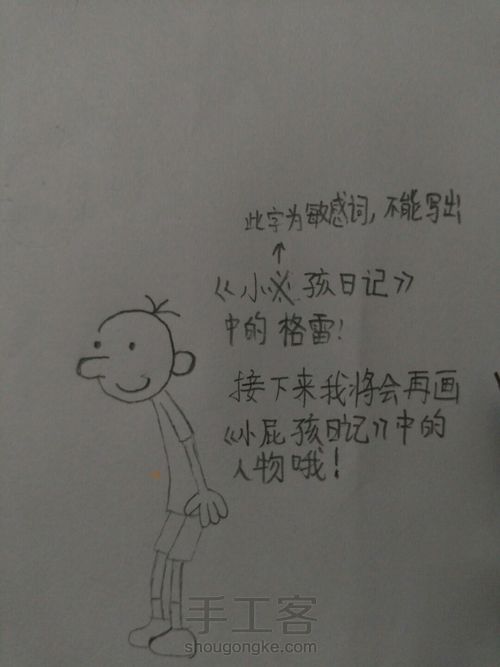 此字为敏感词,不能写出
↑
《小※孩日记》
中的格雷!
接下来我将会再画
《小屁孩日记》中的
人物哦!
手工客
shougongke.com